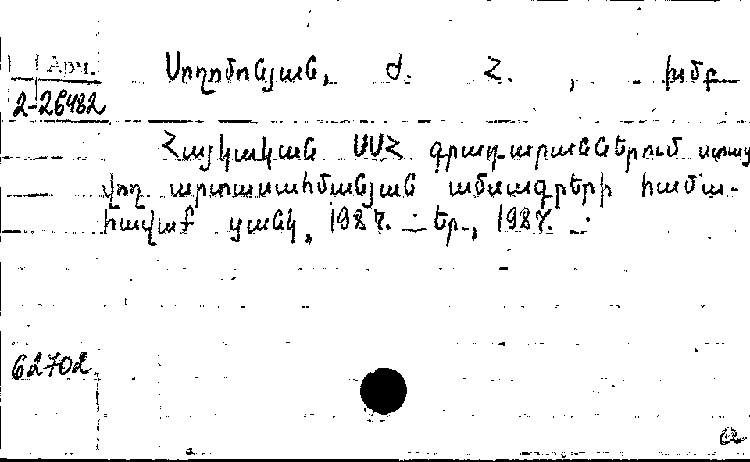 Арм. Սողոմոնյան, Ժ. Հ. , խմբ.
2-26482
Հայկական ՍՍՀ գրադարաններում ստաց
վող արտասահմանյան ամսագրերի համա-
հավաք ցանկ, 1987. - Եր., 1987. -
62702
а